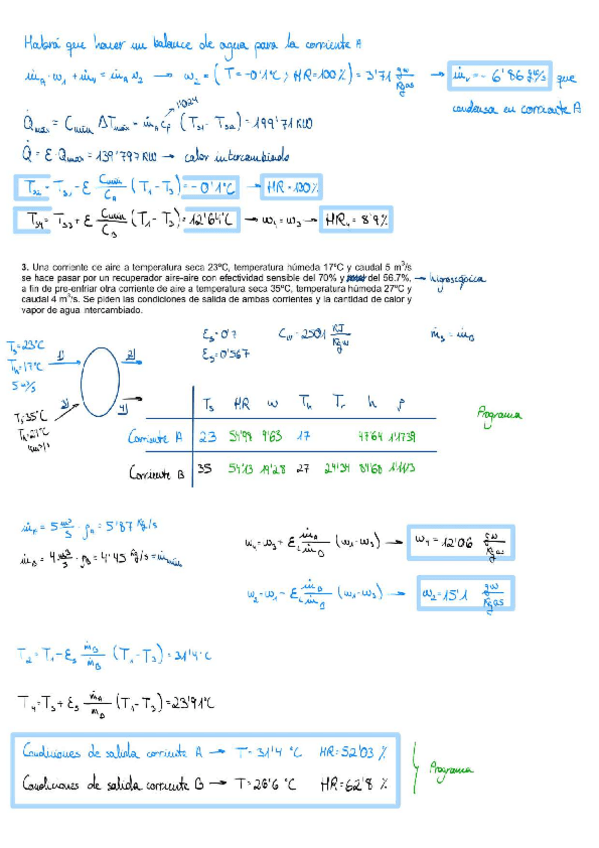 Habrá que hacer un balance de agua para la corriente A
ṁA · w1 + ṁv = ṁA w2 → w2 = (T = -0'1°C ; HR = 100%) = 3'71 gw/Kgas → ṁv = - 6'86 gw/s que
condensa en corriente A
1'024
Q̇max = Cmin ΔTmax = ṁA Cp (T31 - T32) = 199'71 KW
Q̇ = ε · Qmax = 139'797 KW → calor intercambiado
T32 = T31 - ε Cmin/CA (T1 - T3) = -0'1°C → HR = 100%
T34 = T33 + ε Cmin/CB (T1 - T3) = 12'64°C → w4 = w3 → HR4 = 8'9%
3. Una corriente de aire a temperatura seca 23ºC, temperatura húmeda 17ºC y caudal 5 m3/s
se hace pasar por un recuperador aire-aire con efectividad sensible del 70% y del 56.7%, → higroscópica
a fin de pre-enfriar otra corriente de aire a temperatura seca 35ºC, temperatura húmeda 27ºC y
caudal 4 m3/s. Se piden las condiciones de salida de ambas corrientes y la cantidad de calor y
vapor de agua intercambiado.
Ts = 23°C
Th = 17°C
5 m3/s
1) 2)
3) 4)
Ts = 35°C
Th = 27°C
εs = 0'7 Cw = 2501 KJ/Kgw ṁ3 = ṁB
ε = 0'567
Ts HR w Th Tr h ρ
Corriente A 23 9'63 17 47'64 1'1739
Corriente B 35 54'13 19'28 27 24'34 84'68 1'1113
Programa
ṁA = 5 m3/s · ρA = 5'87 Kg/s
ṁB = 4 m3/s · ρB = 4'45 Kg/s = ṁmin
w4 = w3 + εL ṁA/ṁB (w1 - w3) → w4 = 12'06 gw/Kgas
w2 = w1 - εL ṁB/ṁB (w1 - w3) → w2 = 15'1 gw/Kgas
T2 = T1 - εs ṁB/ṁB (T1 - T3) = 31'4°C
T4 = T3 + εs ṁA/ṁB (T1 - T3) = 23'91°C
Condiciones de salida corriente A → T = 31'4 °C HR = 52'03 %
Condiciones de salida corriente B → T = 26'6 °C HR = 62'8 %
Programa